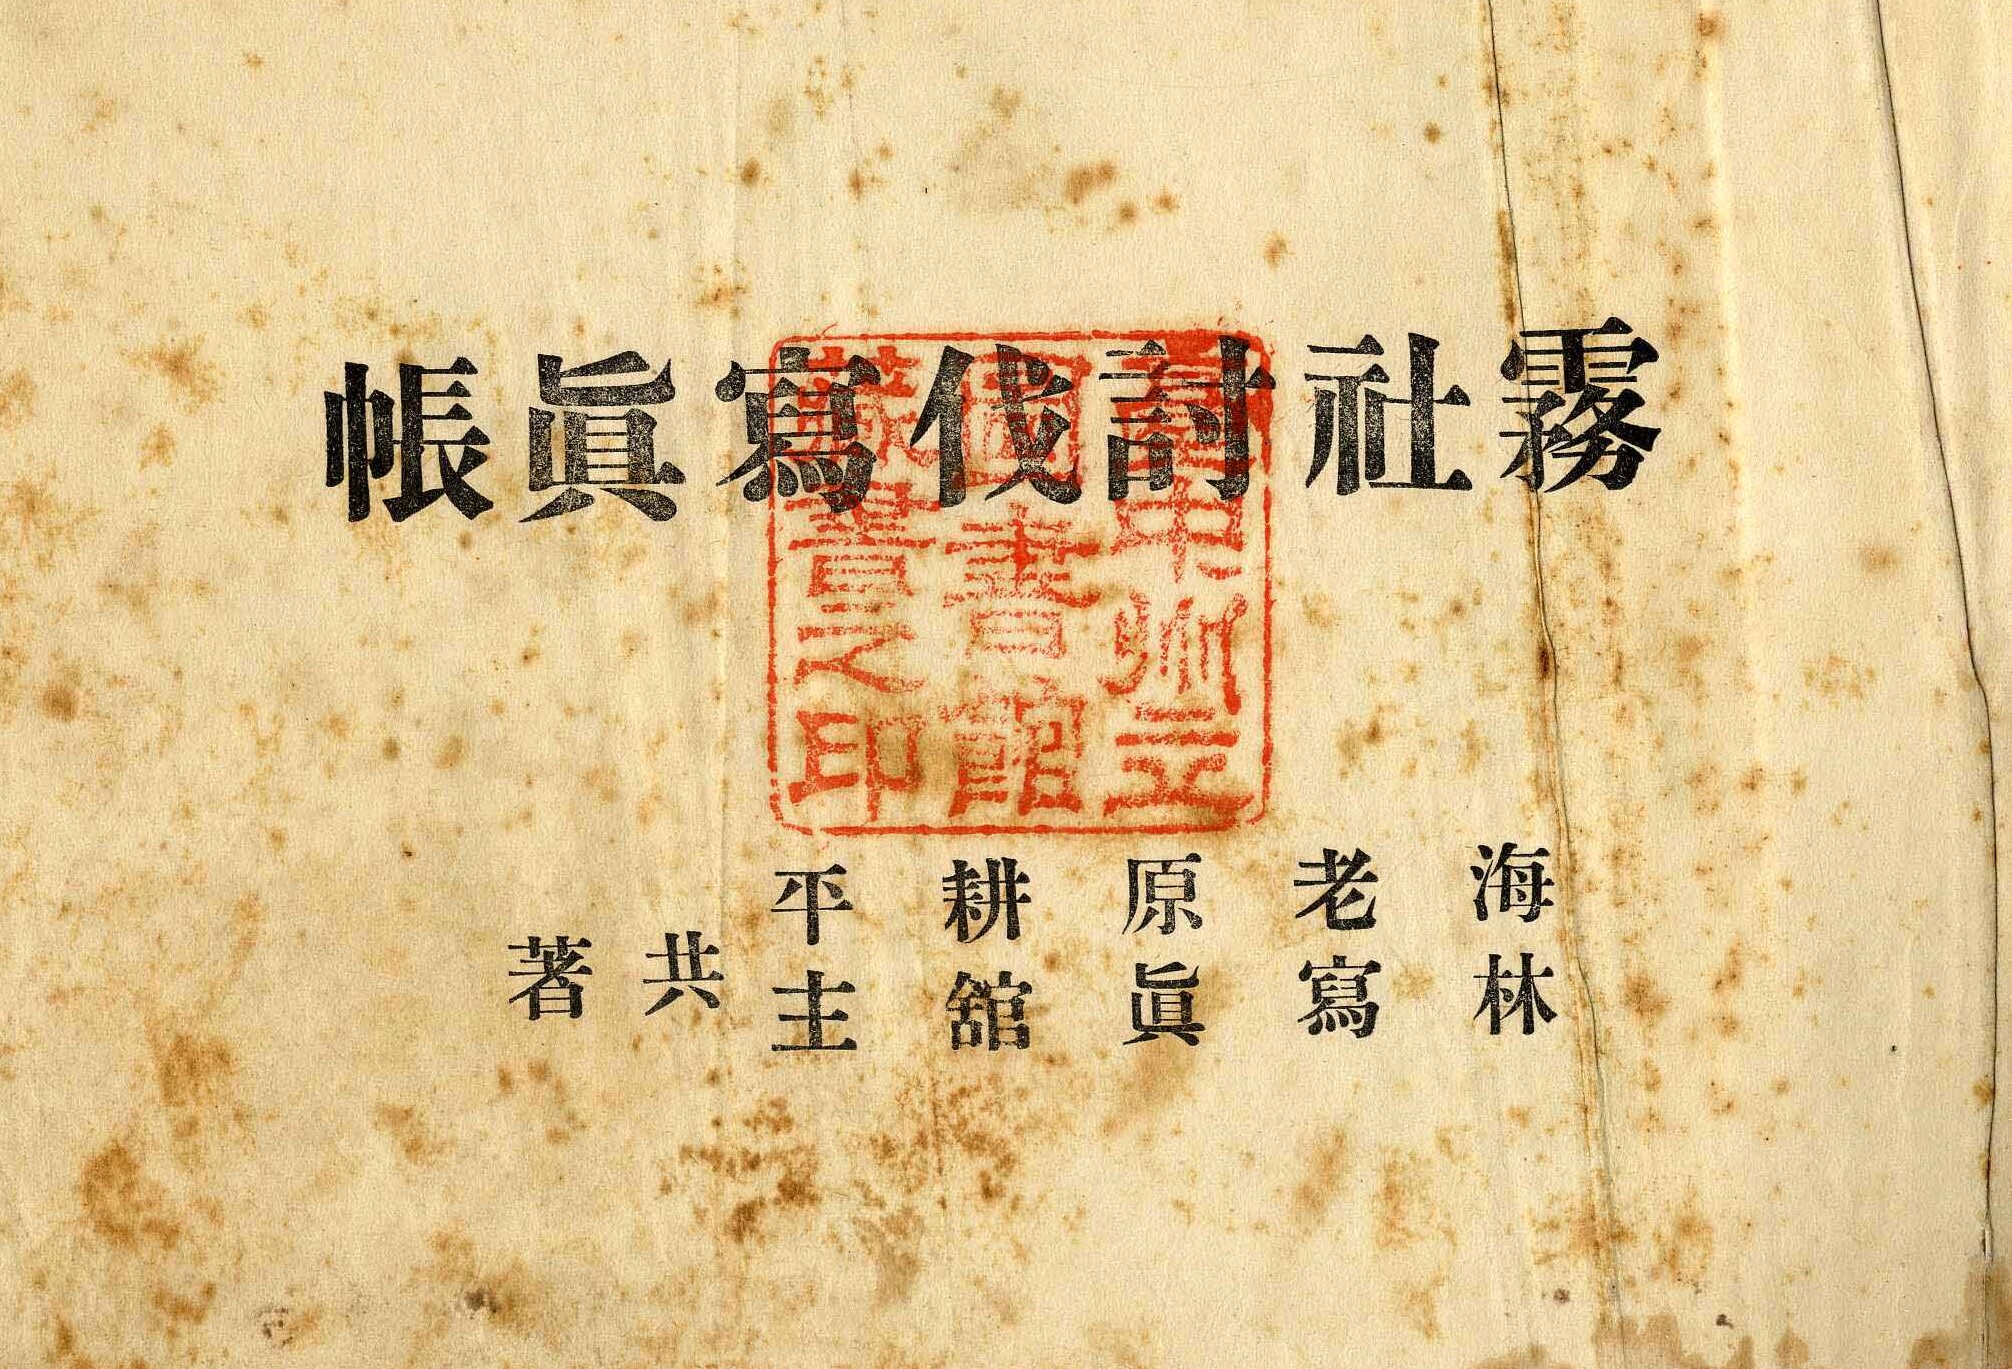 霧社討伐寫眞帳
臺中州立
圖書館
藏書之印
海老原耕平
林寫眞舘主
共著